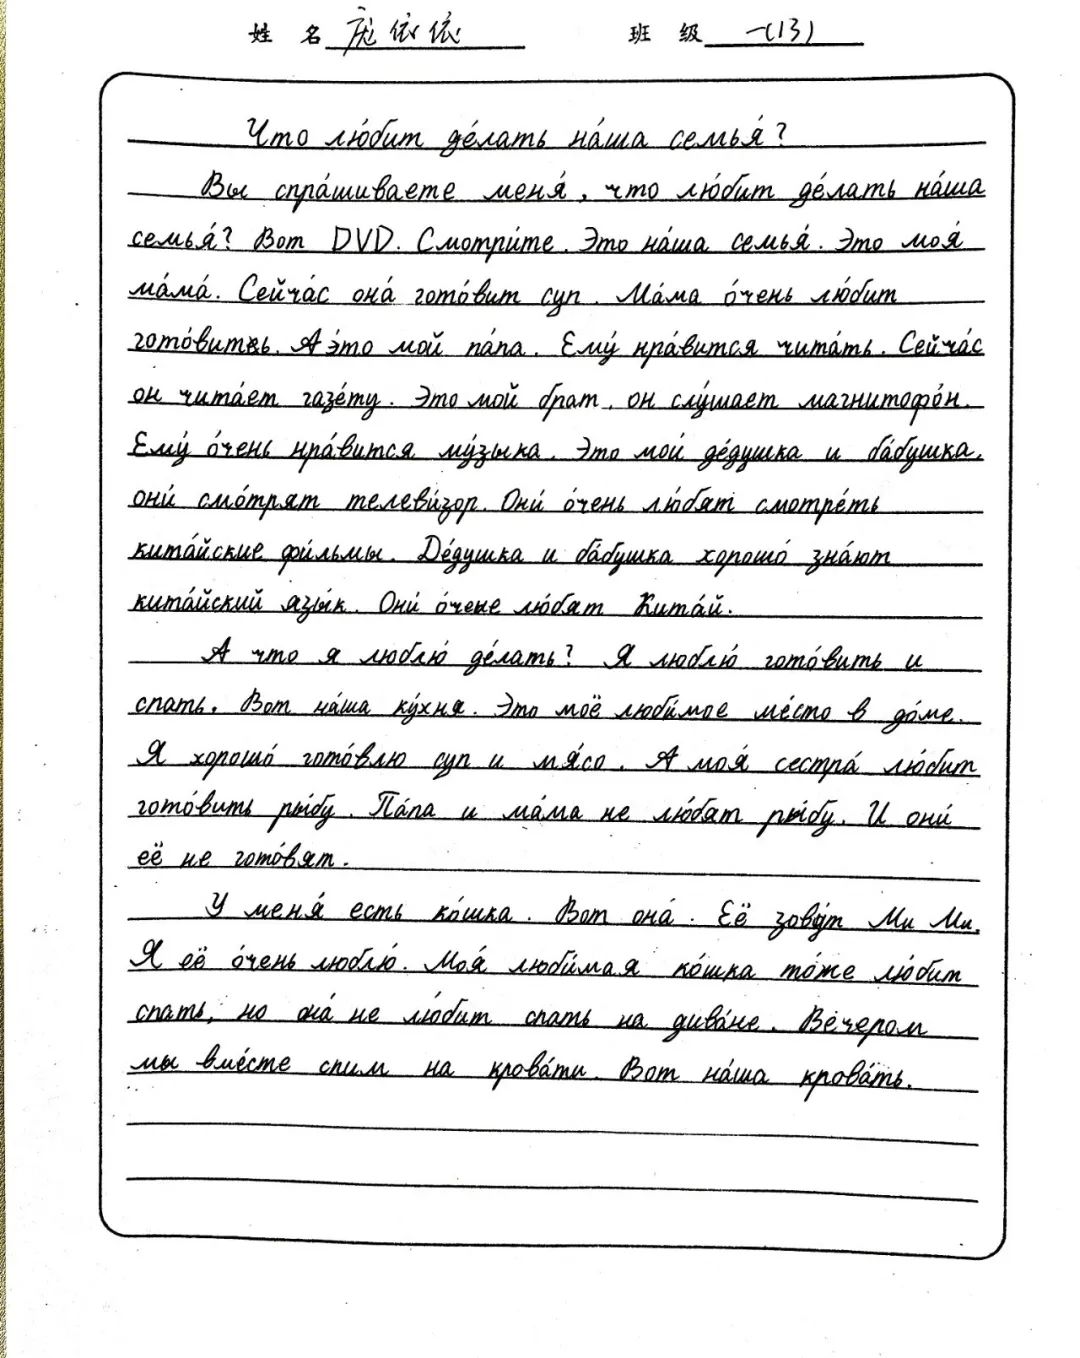 姓 名 庞依依 班 级 一(13)
Что лю́бит де́лать на́ша семья́?
Вы спра́шиваете меня́, что лю́бит де́лать на́ша
семья́? Вот DVD. Смотри́те. Это на́ша семья́. Это моя́
ма́ма́. Сейча́с она́ гото́вит суп. Ма́ма о́чень лю́бит
гото́вить. А э́то мой па́па. Ему́ нра́вится чита́ть. Сейча́с
он чита́ет газе́ту. Это мой брат, он слу́шает магнитофо́н.
Ему́ о́чень нра́вится му́зыка. Это мои́ де́душка и ба́бушка,
они́ смо́трят телеви́зор. Они́ о́чень лю́бят смотре́ть
кита́йские фи́льмы. Де́душка и ба́бушка хорошо́ зна́ют
кита́йский язы́к. Они́ о́чене лю́бят Кита́й.
А что я люблю́ де́лать? Я люблю́ гото́вить и
спать. Вот на́ша ку́хня. Это моё люби́мое ме́сто в до́ме.
Я хорошо́ гото́влю суп и мя́со. А моя́ сестра́ лю́бит
гото́вить ры́бу. Па́па и ма́ма не лю́бят ры́бу. И они́
её не гото́вят.
У меня́ есть ко́шка. Вот она́. Её зову́т Ми Ми.
Я её о́чень люблю́. Моя́ люби́мая ко́шка то́же лю́бит
спать, но она́ не лю́бит спать на дива́не. Ве́чером
мы вме́сте спим на крова́ти. Вот на́ша крова́ть.